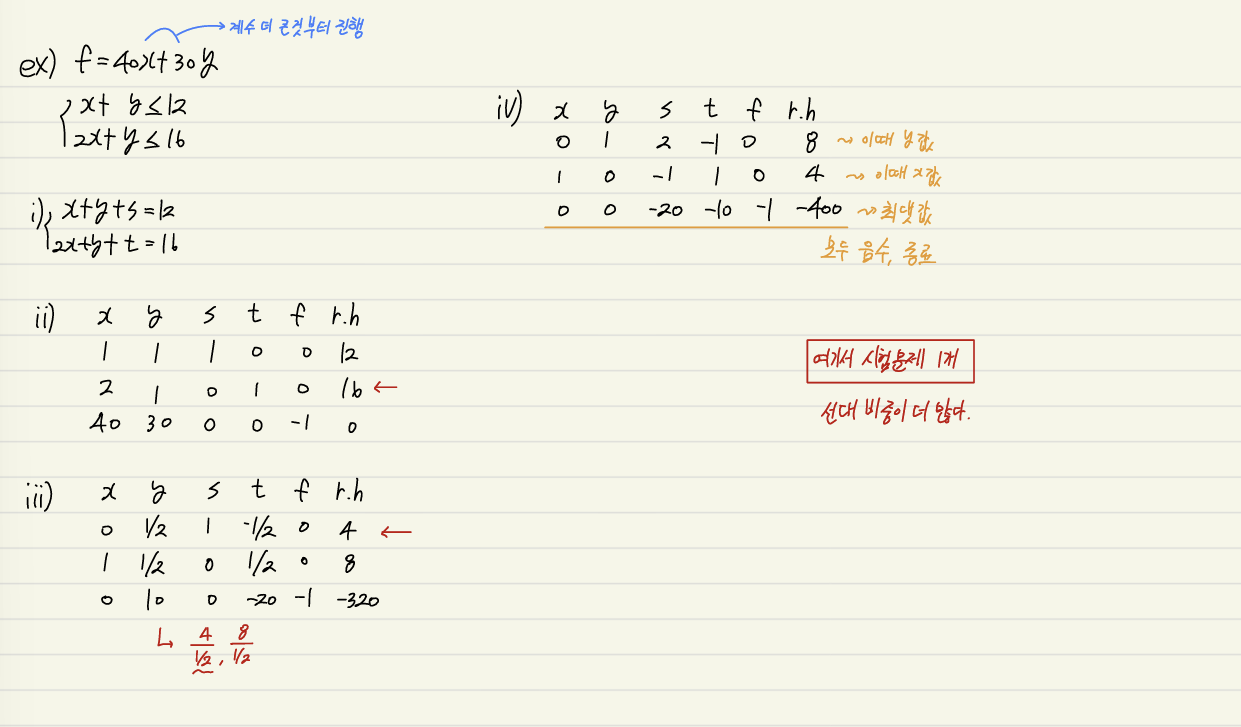 계수 더 큰것부터 진행
ex) f=40x+30y
x+ y≤12
2x+y≤16
i) x+y+s=12
2x+y+t=16
ii) x y s t f r.h
1 1 1 0 0 12
2 1 0 1 0 16 ←
40 30 0 0 -1 0
iii) x y s t f r.h
0 1/2 1 -1/2 0 4 ←
1 1/2 0 1/2 0 8
0 10 0 -20 -1 -320
↳ 4/(1/2), 8/(1/2)
iv) x y s t f r.h
0 1 2 -1 0 8 ~> 이때 y값
1 0 -1 1 0 4 ~> 이때 x값
0 0 -20 -10 -1 -400 ~> 최댓값
모두 음수, 종료
여기서 시험문제 1개
선대 비중이 더 많다.